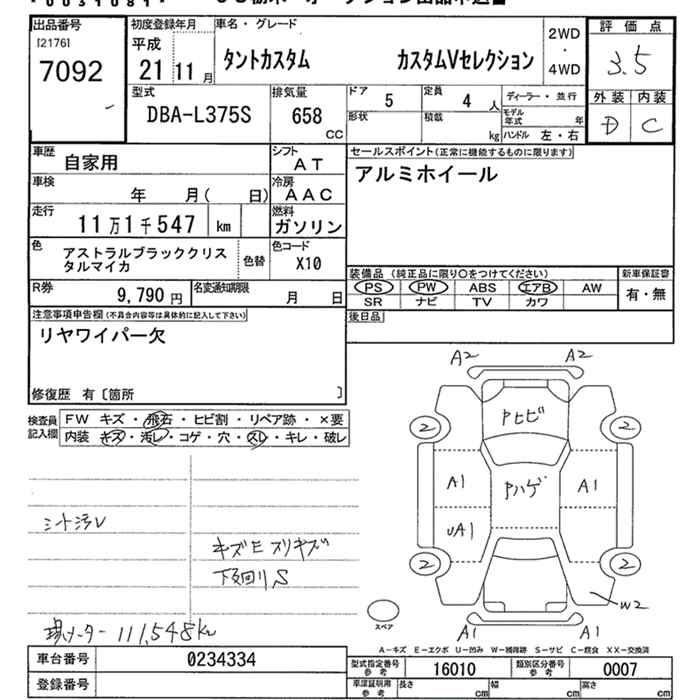 出品番号
[2176]
7092
初度登録年月
平成
21 11 月
車名・グレード
タントカスタム カスタムVセレクション
2WD
・
4WD
評価点
3.5
外装 内装
D C
型式
DBA-L375S
排気量
658
CC
ドア
5
定員
4 人
形状
積載
kg
ディーラー・並行
モデル年式 年
ハンドル 左・右
車歴
自家用
シフト
AT
車検
年 月( 日)
冷房
AAC
走行
11万1千547 km
燃料
ガソリン
色
アストラルブラッククリスタルマイカ
色替
色コード
X10
R券
9,790 円
名変通知期限
月 日
セールスポイント(正常に機能するものに限ります)
アルミホイール
装備品 (純正品に限り○をつけてください)
PS PW ABS エアB AW
SR ナビ TV カワ
新車保証書
有・無
後日品
注意事項申告欄(不具合内容等は具体的に記入して下さい)
リヤワイパー欠
修復歴 有〔箇所 〕
検査員記入欄
FW キズ・飛石・ヒビ割・リペア跡・×要
内装 キズ・汚レ・コゲ・穴・スレ・キレ・破レ
シート汚レ
キズE スリキズ
下回りS
現メーター 111,548km
A2 A2
Pヒビ
2 2
A1 Pハゲ A1
UA1
2 2
W2
A1 A1
スペア
A-キズ E-エクボ U-凹み W-補修跡 S-サビ C-腐食 XX-交換済
車台番号
0234334
登録番号
型式指定番号
参考
16010
類別区分番号
参考
0007
車庫証明用
参考
長さ cm
幅 cm
高さ cm